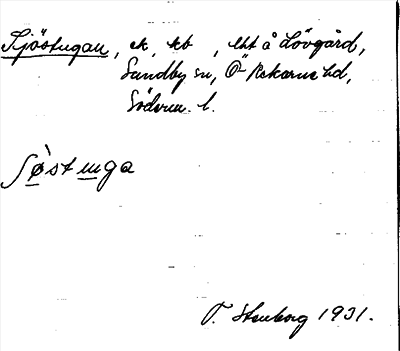 Sjöstugan, ek, kb, lht å Lövgård,
Sundby sn, Ö Rekarne hd,
Söderm. l.
Søstuga
T. Stenborg 1931.